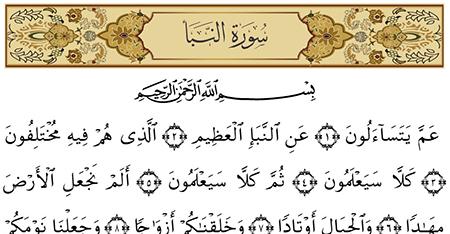 سُورَةُ النَّبَإِ
بِسْمِ ٱللَّهِ ٱلرَّحْمَٰنِ ٱلرَّحِيمِ
عَمَّ يَتَسَآءَلُونَ ﴿١﴾ عَنِ ٱلنَّبَإِ ٱلْعَظِيمِ ﴿٢﴾ ٱلَّذِى هُمْ فِيهِ مُخْتَلِفُونَ
﴿٣﴾ كَلَّا سَيَعْلَمُونَ ﴿٤﴾ ثُمَّ كَلَّا سَيَعْلَمُونَ ﴿٥﴾ أَلَمْ نَجْعَلِ ٱلْأَرْضَ
مِهَٰدًا ﴿٦﴾ وَٱلْجِبَالَ أَوْتَادًا ﴿٧﴾ وَخَلَقْنَٰكُمْ أَزْوَٰجًا ﴿٨﴾ وَجَعَلْنَا نَوْمَكُمْ